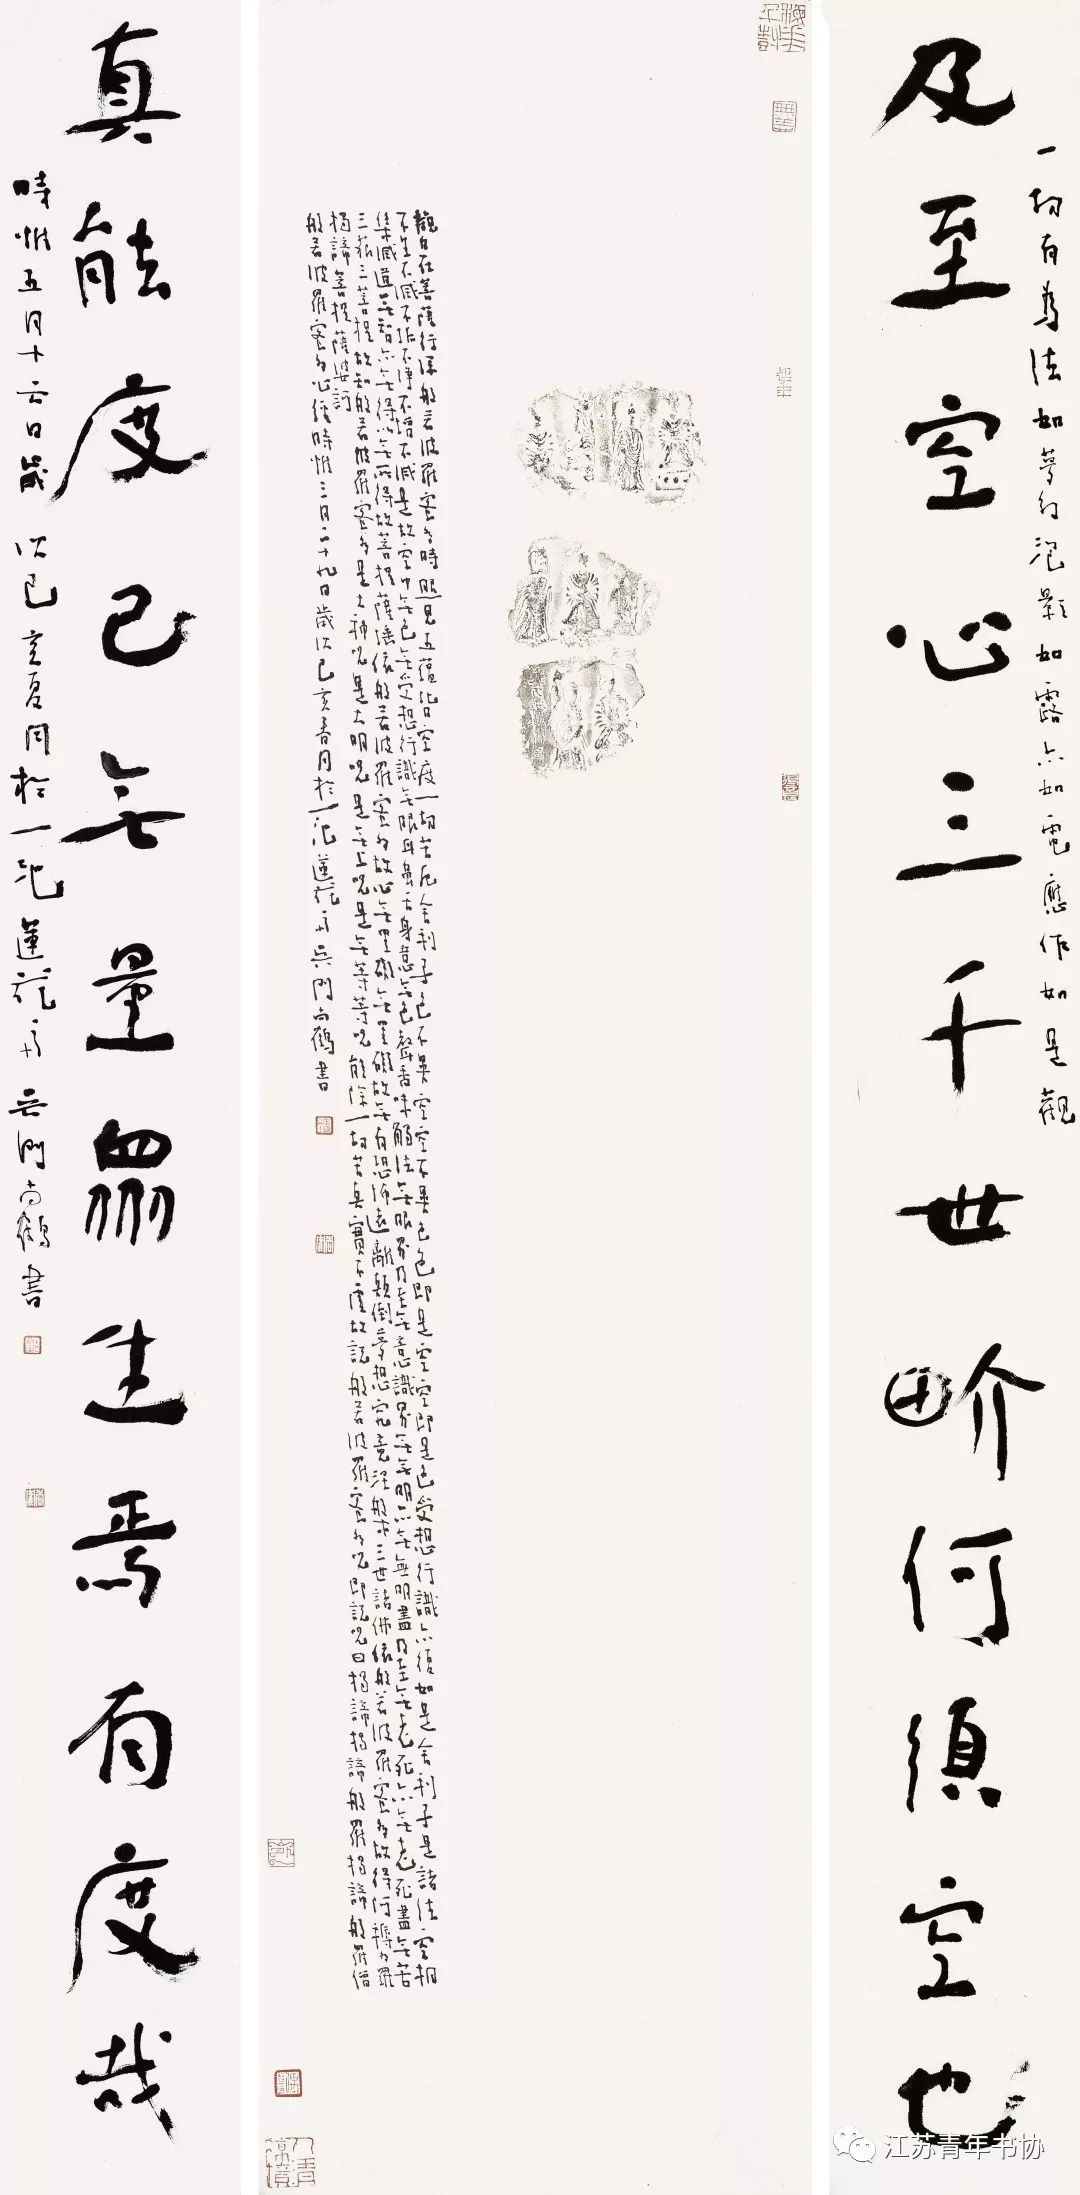 一切有為法如夢幻泡影如露亦如電應作如是觀
及至空心三千世畍何須空也
觀自在菩薩行深般若波羅蜜多時照見五蘊皆空度一切苦厄舍利子色不異空空不異色色即是空空即是色受想行識亦復如是舍利子是諸法空相
不生不滅不垢不淨不增不減是故空中无色无受想行識无眼耳鼻舌身意无色聲香味觸法无眼界乃至无意識界无无明亦无無明盡乃至无老死亦无老死盡无苦
集滅道无智亦无得以无所得故菩提薩埵依般若波羅蜜多故心无罣礙无罣礙故无有恐怖遠離顛倒夢想究竟涅槃三世諸佛依般若波羅蜜多故得阿耨多羅
三藐三菩提故知般若波羅蜜多是大神咒是大明咒是无上咒是无等等咒能除一切苦真實不虛故說般若波羅蜜多咒即說咒曰揭諦揭諦般羅揭諦般羅僧
揭諦菩提薩婆訶
般若波羅蜜多心經時惟三月二十九日歲次己亥春月於一池蓮花舟吳門尚鶴書
真能度己无量眾生焉有度哉
時惟五月十六日歲次己亥夏月於一池蓮花舟吳門尚鶴書
江苏青年书协